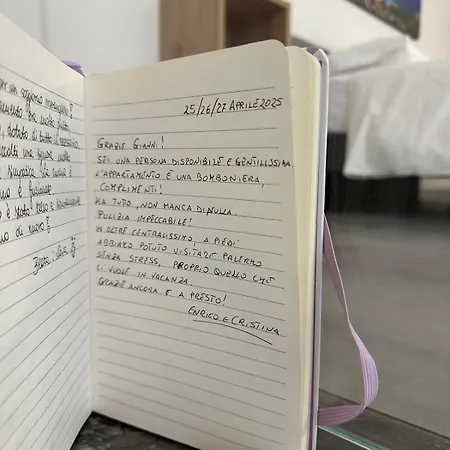 un soggiorno
molto
dotato di tutto
di nuovo
25/26/27 APRILE 2025
GRAZIE GIANNI!
SEI UNA PERSONA DISPONIBILE E GENTILISSIMA
L'APPARTAMENTO È UNA BOMBONIERA,
COMPLIMENTI!
HA TUTTO, NON MANCA DI NULLA.
PULIZIA IMPECCABILE!
IN OLTRE CENTRALISSIMO, A PIEDI
ABBIAMO POTUTO VISITARE PALERMO
SENZA STRESS, PROPRIO QUELLO CHE
SI VUOLE IN VACANZA.
GRAZIE ANCORA E A PRESTO!
ENRICO E CRISTINA